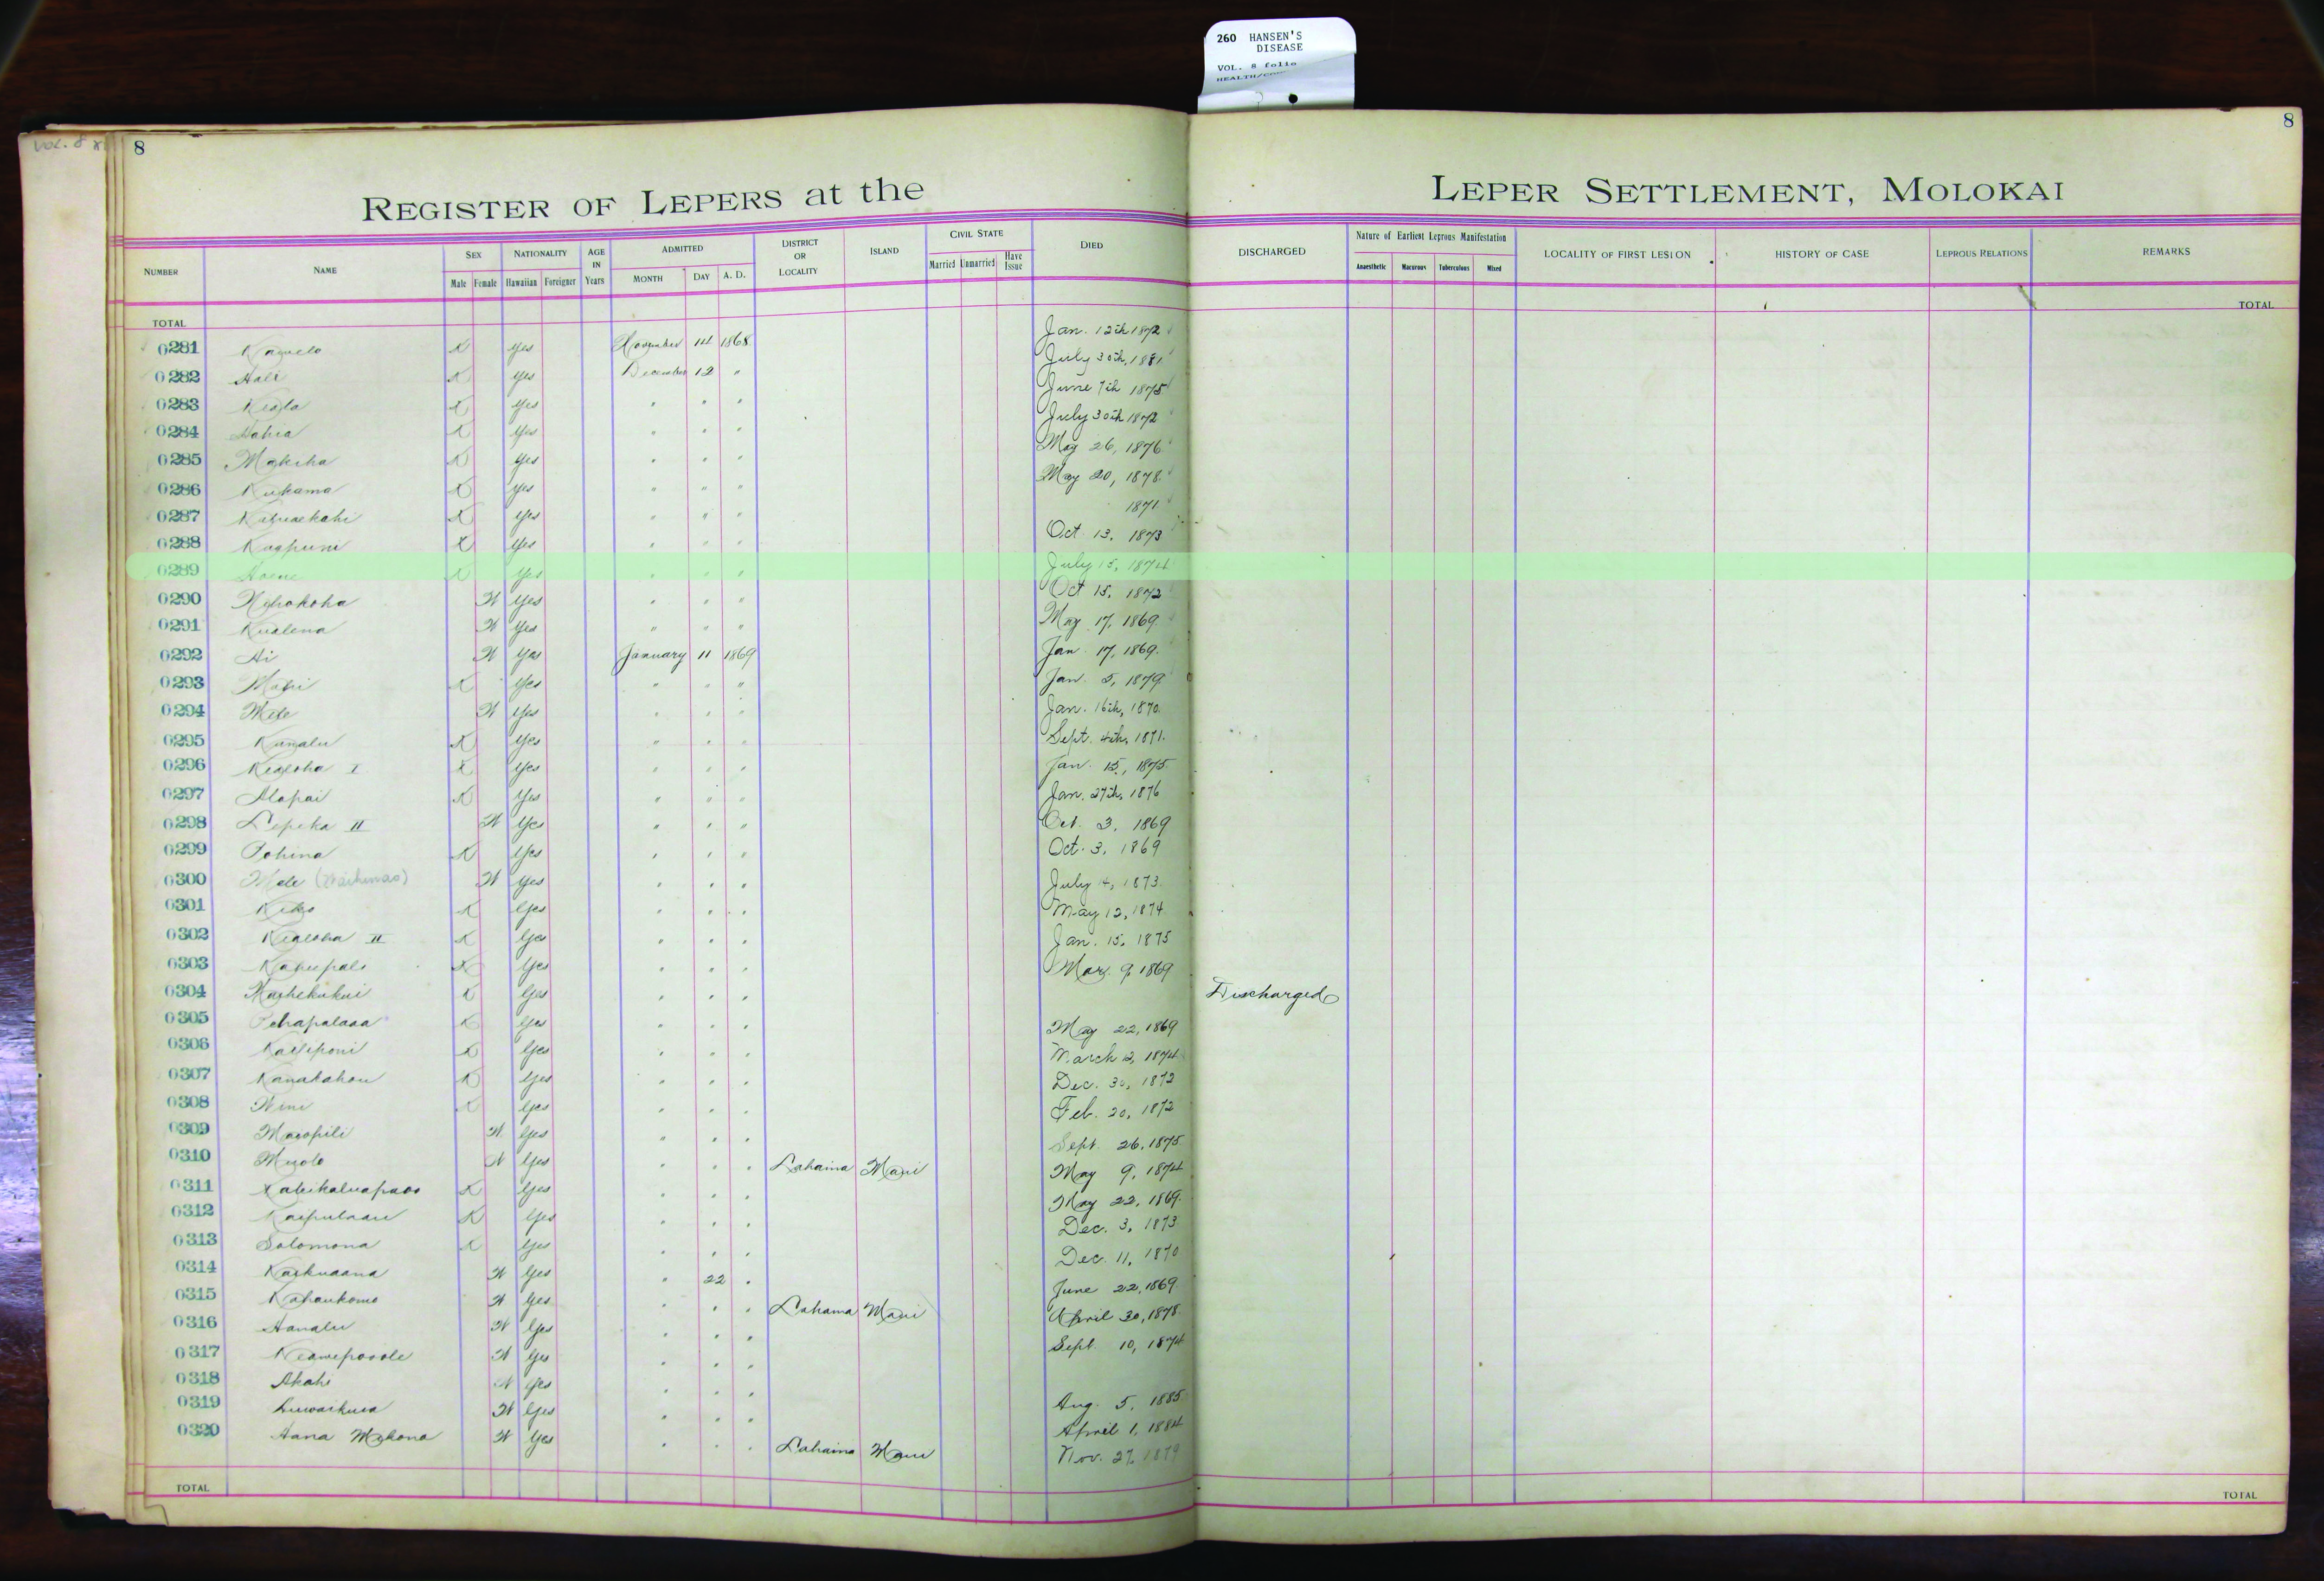 260 HANSEN'S
DISEASE
VOL. 8 folio
VOL. 8
8
8
REGISTER OF LEPERS at the LEPER SETTLEMENT, MOLOKAI
NUMBER NAME SEX NATIONALITY AGE IN Years ADMITTED DISTRICT OR LOCALITY ISLAND CIVIL STATE DIED DISCHARGED Nature of Earliest Leprous Manifestation LOCALITY OF FIRST LESION HISTORY OF CASE LEPROUS RELATIONS REMARKS
Male Female Hawaiian Foreigner MONTH DAY A. D. Married Unmarried Have Issue Anaesthetic Macurous Tuberculous Mixed
TOTAL TOTAL
0281 K yes November 14 1868 Jan. 12th 1872
0282 Hali K yes December 12 " July 30th, 1881
0283 K yes " " " June 7th 1875
0284 K yes " " " July 30th 1872
0285 Makeha K yes " " " May 26, 1876
0286 Kukama K yes " " " May 20, 1878
0287 K yes " " " 1871
0288 K yes " " " Oct 13, 1873
0289 K yes " " " July 15, 1874
0290 W yes " " " Oct 15, 1872
0291 Kualena W yes " " " May 17, 1869
0292 Ai W yes January 11 1869 Jan 17, 1869
0293 K yes " " " Jan 5, 1879
0294 Mele W yes " " " Jan. 16th, 1870
0295 K yes " " " Sept. 4th, 1871
0296 Kealoha I K yes " " " Jan. 15, 1875
0297 Alapai K yes " " " Jan. 27th, 1876
0298 Lepeka II W yes " " " Oct. 3, 1869
0299 Pohina K yes " " " Oct. 3, 1869
0300 Mele W yes " " " July 4, 1873
0301 K yes " " " May 12, 1874
0302 Kealoha II K yes " " " Jan. 15, 1875
0303 K yes " " " Mar. 9, 1869
0304 K yes " " " Discharged
0305 Pehapalaaa K yes " " " May 22, 1869
0306 K yes " " " March 12, 1874
0307 Kanakahou K yes " " " Dec. 30, 1872
0308 Wini K yes " " " Feb. 20, 1872
0309 Maiopili W yes " " " Sept 26, 1875
0310 W yes " " " Lahaina Maui May 9, 1874
0311 K yes " " " May 22, 1869
0312 K yes " " " Dec. 3, 1873
0313 Solomona K yes " " " Dec. 11, 1870
0314 Kaikuaana W yes " 22 " June 22, 1869
0315 W yes " " " Lahaina Maui April 30, 1878
0316 Hanalu W yes " " " Sept. 10, 1874
0317 Keawepoole W yes " " "
0318 Akahi W yes " " " Aug. 5, 1885
0319 W yes " " " April 1, 1884
0320 Hana W yes " " " Lahaina Maui Nov. 27, 1879
TOTAL TOTAL